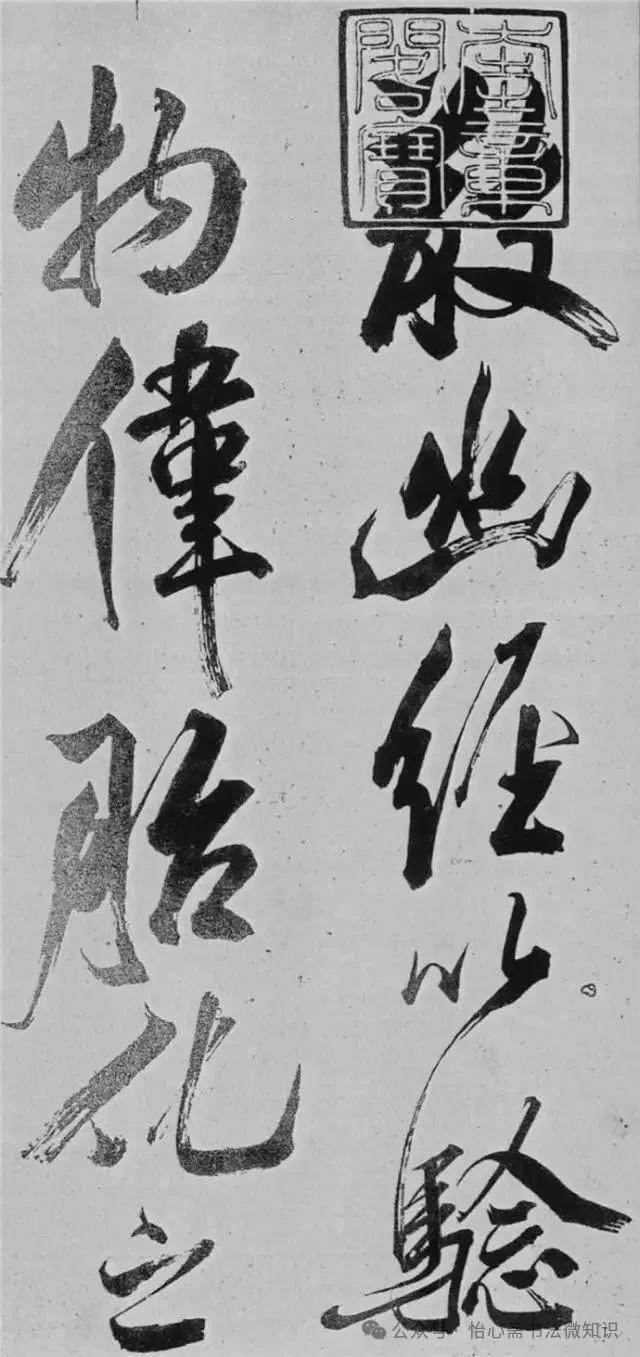 奎章
閣寶
散幽經以騐
物偉胎化之
公众号 · 怡心斋书法微知识